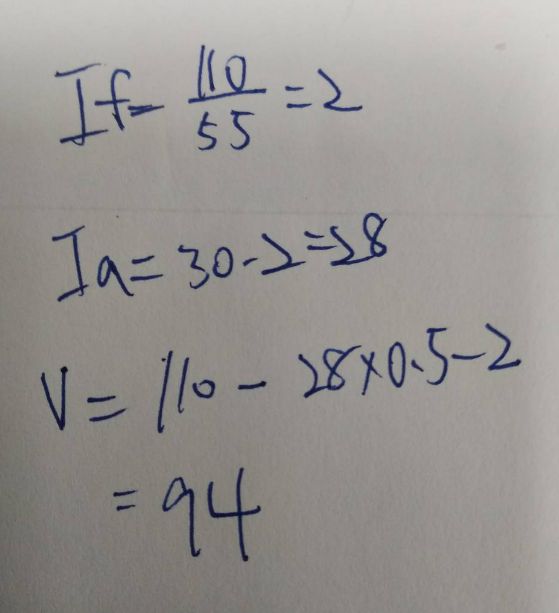 If = 110/55 = 2
Ia = 30 - 2 = 28
V = 110 - 28 × 0.5 - 2
= 94